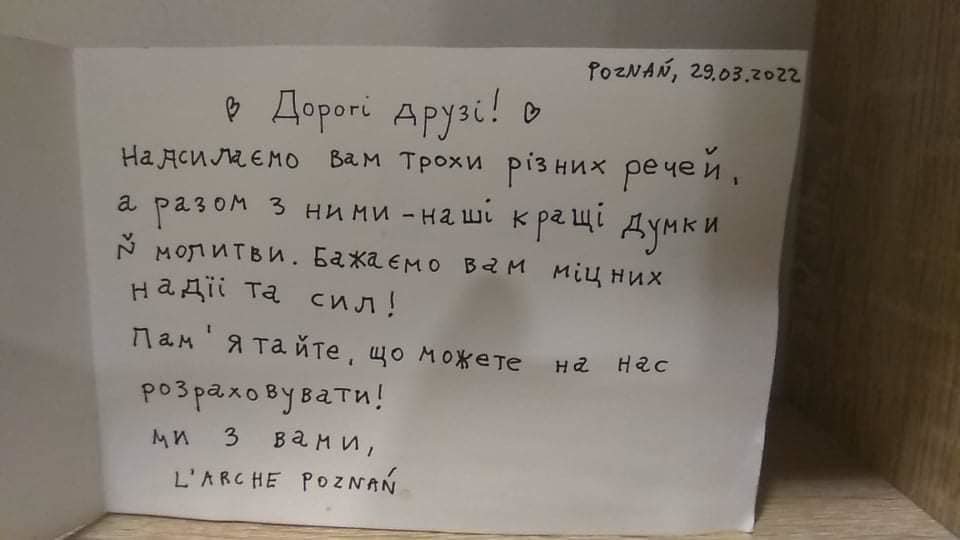 POZNAŃ, 29.03.2022
♡ Дорогі друзі! ♡
Надсилаємо вам трохи різних речей,
а разом з ними – наші кращі думки
й молитви. Бажаємо вам міцних
надії та сил!
Пам'ятайте, що можете на нас
розраховувати!
ми з вами,
L'ARCHE POZNAŃ